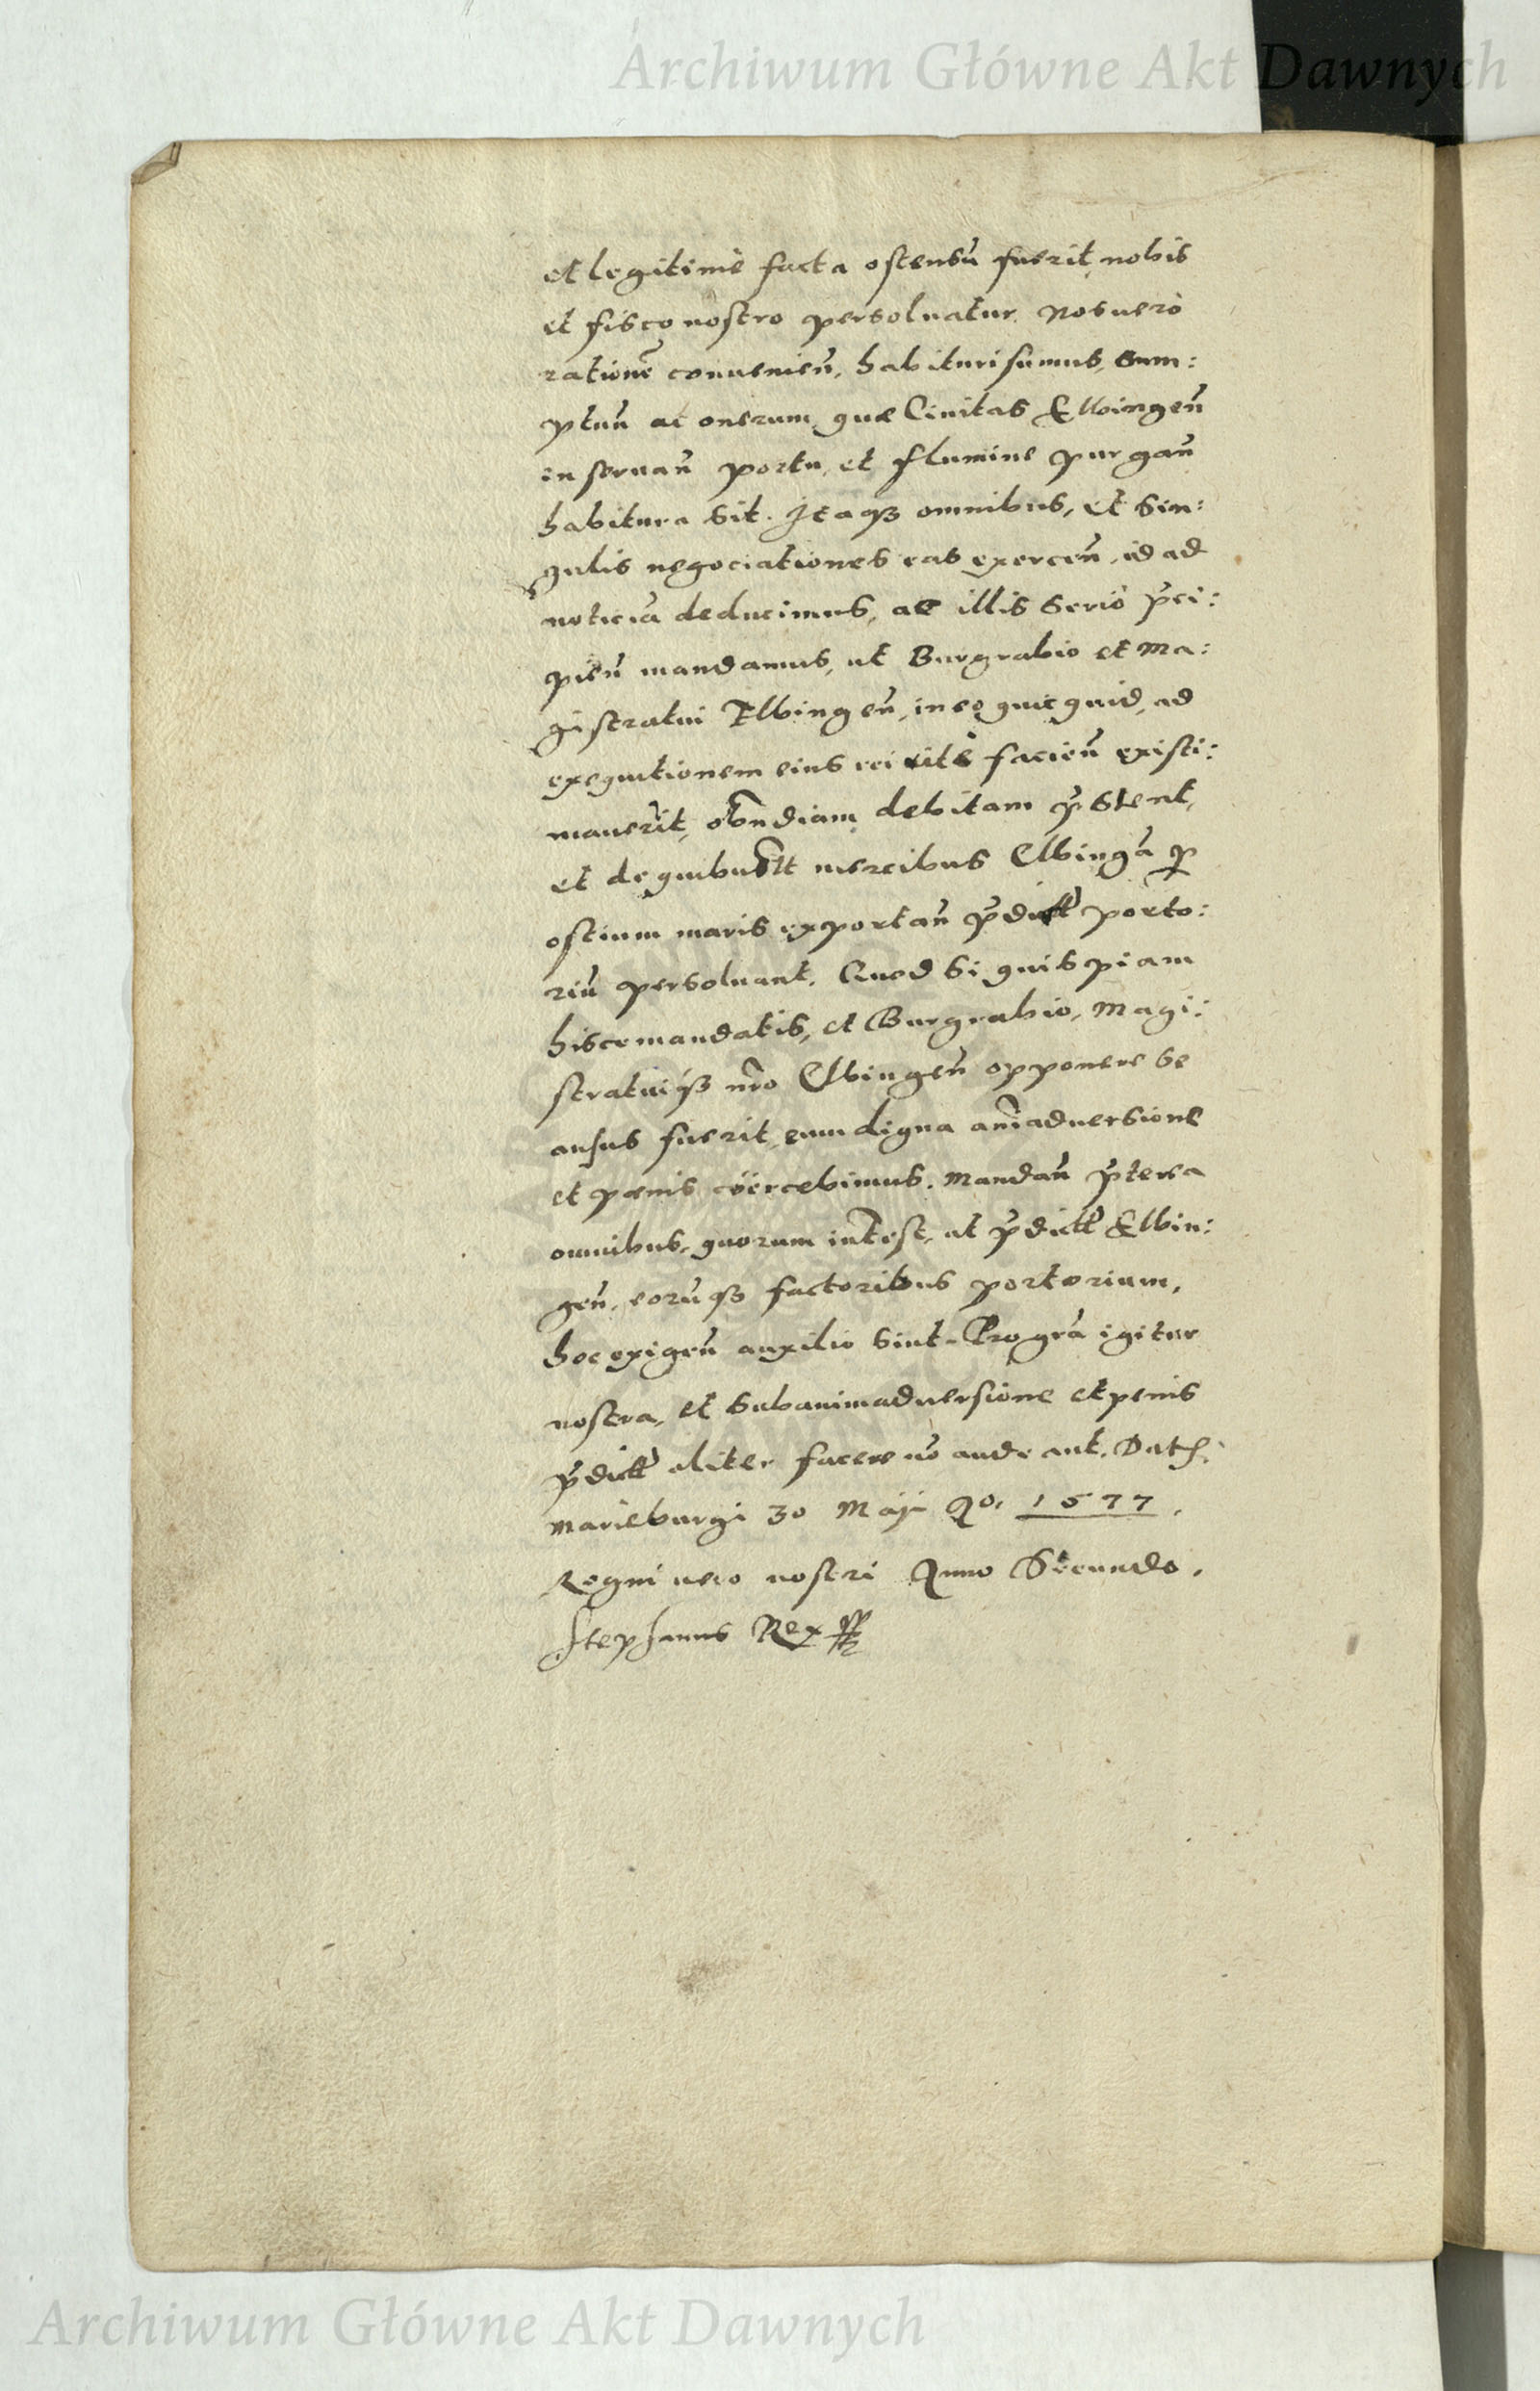 Archiwum Główne Akt Dawnych
et legitimè facta ostensū fuerit, nobis
et fisco nostro persoluatur. Nos uerò
rationē conuenien̄, habituri sumus, sum:
ptuū ac onerum, quæ Ciuitas Elbingen̄
in seruan̄ portu, et flumine purgan̄
habitura sit. Itaqȝ omnibus, et sin:
gulis negociationes eas exercen̄, id ad
noticiā deducimus, ac illis seriò p̄ci:
pien̄ mandamus, ut Burgrabio et Ma:
gistratui Elbingen̄, in eo quicquid, ad
exequutionem eius rei ritè facien̄ existi:
mauerit, obn̄diam debitam p̄stent,
et de quibusuis mercibus Elbingā p̱
ostium maris exportan̄ p̄dict portо:
riū persoluant. Quod si quispiam
hisce mandatis, et Burgrabio, Magi:
stratuiqȝ nr̄o Elbingen̄ opponere se
ausus fuerit, eum digna anīaduersione
et pœnis coërcebimus. Mandan̄ p̄terea
omnibus, quorum interest, ut p̄dict Elbin:
gen̄, eorūqȝ factoribus portorium,
hoc exigen̄ auxilio sint. Pro grā igitur
nostra, et sub animaduersione et penis
p̄dict aliter facere nō audeant. Dat
Marieburgi 30 Maij Ao. 1577.
Regni uero nostri Anno Secundo.
Stephanus Rex
Archiwum Główne Akt Dawnych